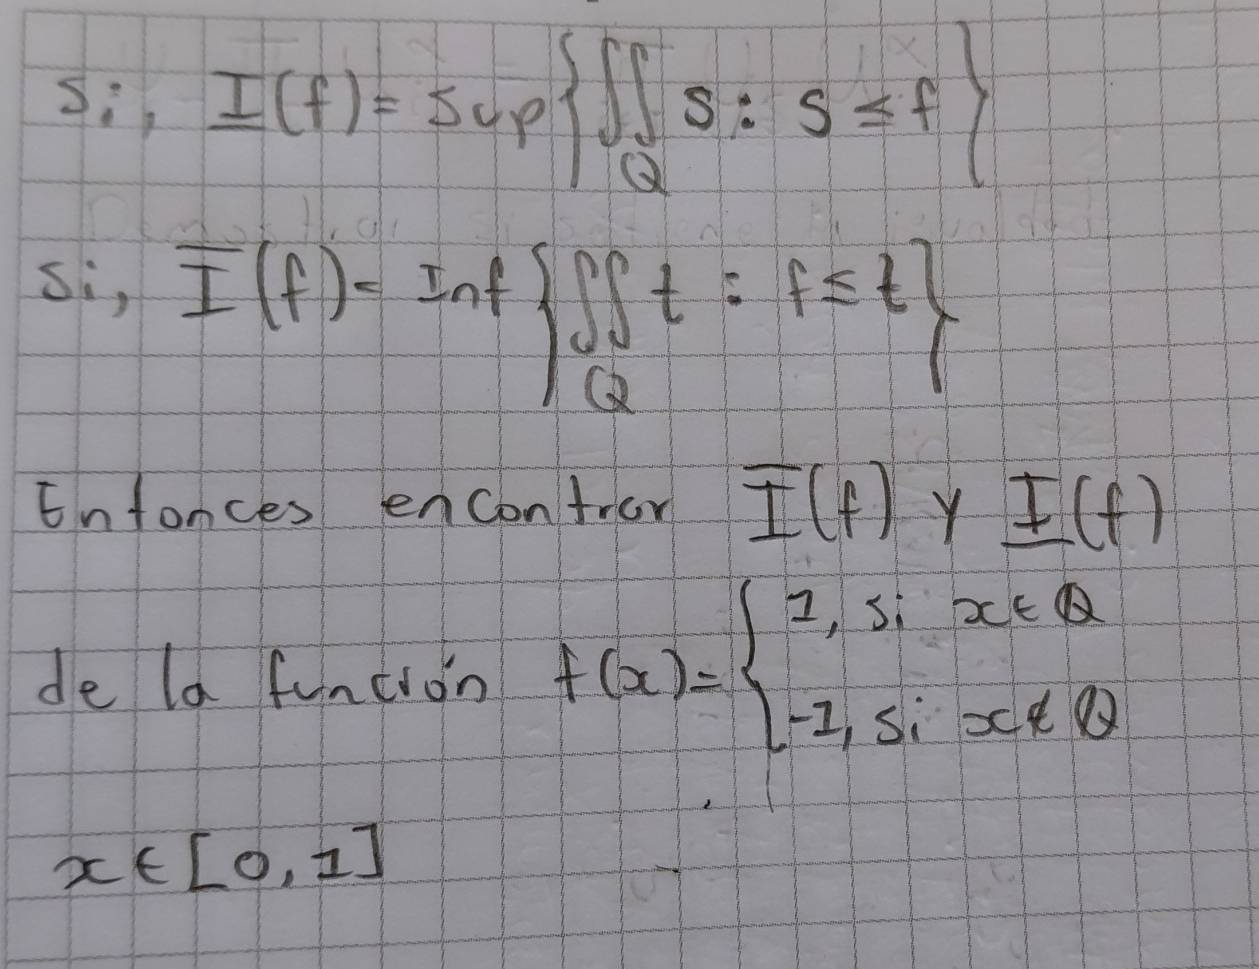 Si, I̲(f) = Sup{∬_Q s : s ≤ f}
Si, Ī(f) = Inf{∬_Q t : f ≤ t}
Entonces encontrar Ī(f) y I̲(f)
de la función f(x) = { 1, si x ∈ ℚ
-1, si x ∉ ℚ
x ∈ [0, 1]